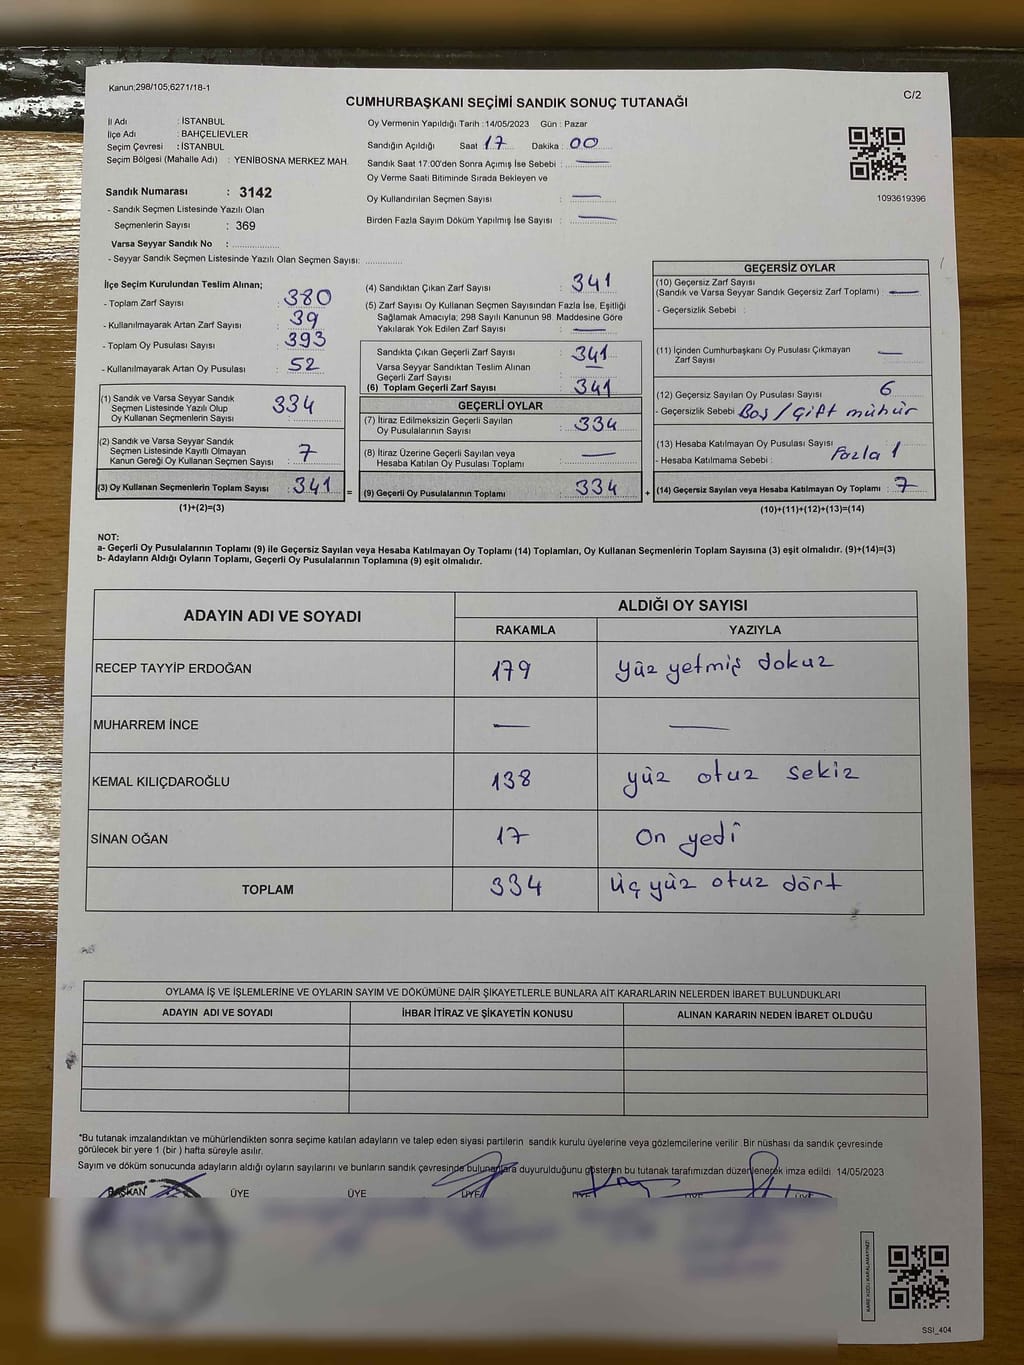 Kanun;298/105,6271/18-1
C/2
CUMHURBAŞKANI SEÇİMİ SANDIK SONUÇ TUTANAĞI
İl Adı : İSTANBUL
İlçe Adı : BAHÇELİEVLER
Seçim Çevresi : İSTANBUL
Seçim Bölgesi (Mahalle Adı) : YENİBOSNA MERKEZ MAH.
Sandık Numarası : 3142
- Sandık Seçmen Listesinde Yazılı Olan
Seçmenlerin Sayısı : 369
Varsa Seyyar Sandık No :
- Seyyar Sandık Seçmen Listesinde Yazılı Olan Seçmen Sayısı:
Oy Vermenin Yapıldığı Tarih :14/05/2023 Gün : Pazar
Sandığın Açıldığı Saat 17 Dakika : 00
Sandık Saat 17:00'den Sonra Açımış İse Sebebi : —
Oy Verme Saati Bitiminde Sırada Bekleyen ve
Oy Kullandırılan Seçmen Sayısı : —
Birden Fazla Sayım Döküm Yapılmış İse Sayısı : —
1093619396
İlçe Seçim Kurulundan Teslim Alınan;
- Toplam Zarf Sayısı : 380
- Kullanılmayarak Artan Zarf Sayısı : 39
- Toplam Oy Pusulası Sayısı : 393
- Kullanılmayarak Artan Oy Pusulası : 52
(1) Sandık ve Varsa Seyyar Sandık
Seçmen Listesinde Yazılı Olup
Oy Kullanan Seçmenlerin Sayısı : 334
(2) Sandık ve Varsa Seyyar Sandık
Seçmen Listesinde Kayıtlı Olmayan
Kanun Gereği Oy Kullanan Seçmen Sayısı : 7
(3) Oy Kullanan Seçmenlerin Toplam Sayısı : 341
(1)+(2)=(3)
(4) Sandıktan Çıkan Zarf Sayısı : 341
(5) Zarf Sayısı Oy Kullanan Seçmen Sayısından Fazla İse, Eşitliği
Sağlamak Amacıyla; 298 Sayılı Kanunun 98. Maddesine Göre
Yakılarak Yok Edilen Zarf Sayısı : —
Sandıkta Çıkan Geçerli Zarf Sayısı : 341
Varsa Seyyar Sandıktan Teslim Alınan
Geçerli Zarf Sayısı : —
(6) Toplam Geçerli Zarf Sayısı : 341
GEÇERLİ OYLAR
(7) İtiraz Edilmeksizin Geçerli Sayılan
Oy Pusulalarının Sayısı : 334
(8) İtiraz Üzerine Geçerli Sayılan veya
Hesaba Katılan Oy Pusulası Toplamı : —
= (9) Geçerli Oy Pusulalarının Toplamı : 334
GEÇERSİZ OYLAR
(10) Geçersiz Zarf Sayısı
(Sandık ve Varsa Seyyar Sandık Geçersiz Zarf Toplamı) : —
- Geçersizlik Sebebi :
(11) İçinden Cumhurbaşkanı Oy Pusulası Çıkmayan
Zarf Sayısı : —
(12) Geçersiz Sayılan Oy Pusulası Sayısı : 6
- Geçersizlik Sebebi : Boş / Çift mühür
(13) Hesaba Katılmayan Oy Pusulası Sayısı :
- Hesaba Katılmama Sebebi : Fazla 1
+ (14) Geçersiz Sayılan veya Hesaba Katılmayan Oy Toplamı : 7
(10)+(11)+(12)+(13)=(14)
NOT:
a- Geçerli Oy Pusulalarının Toplamı (9) ile Geçersiz Sayılan veya Hesaba Katılmayan Oy Toplamı (14) Toplamları, Oy Kullanan Seçmenlerin Toplam Sayısına (3) eşit olmalıdır. (9)+(14)=(3)
b- Adayların Aldığı Oyların Toplamı, Geçerli Oy Pusulalarının Toplamına (9) eşit olmalıdır.
ADAYIN ADI VE SOYADI ALDIĞI OY SAYISI
RAKAMLA YAZIYLA
RECEP TAYYİP ERDOĞAN 179 yüz yetmiş dokuz
MUHARREM İNCE — —
KEMAL KILIÇDAROĞLU 138 yüz otuz sekiz
SİNAN OĞAN 17 On yedi
TOPLAM 334 üç yüz otuz dört
OYLAMA İŞ VE İŞLEMLERİNE VE OYLARIN SAYIM VE DÖKÜMÜNE DAİR ŞİKAYETLERLE BUNLARA AİT KARARLARIN NELERDEN İBARET BULUNDUKLARI
ADAYIN ADI VE SOYADI İHBAR İTİRAZ VE ŞİKAYETİN KONUSU ALINAN KARARIN NEDEN İBARET OLDUĞU
*Bu tutanak imzalandıktan ve mühürlendikten sonra seçime katılan adayların ve talep eden siyasi partilerin sandık kurulu üyelerine veya gözlemcilerine verilir. Bir nüshası da sandık çevresinde
görülecek bir yere 1 (bir) hafta süreyle asılır.
Sayım ve döküm sonucunda adayların aldığı oyların sayılarını ve bunların sandık çevresinde bulunanlara duyurulduğunu gösteren bu tutanak tarafımızdan düzenlenerek imza edildi. 14/05/2023
BAŞKAN ÜYE ÜYE ÜYE ÜYE ÜYE ÜYE
KARE KODU KARALAMAYINIZ!
SSI_404